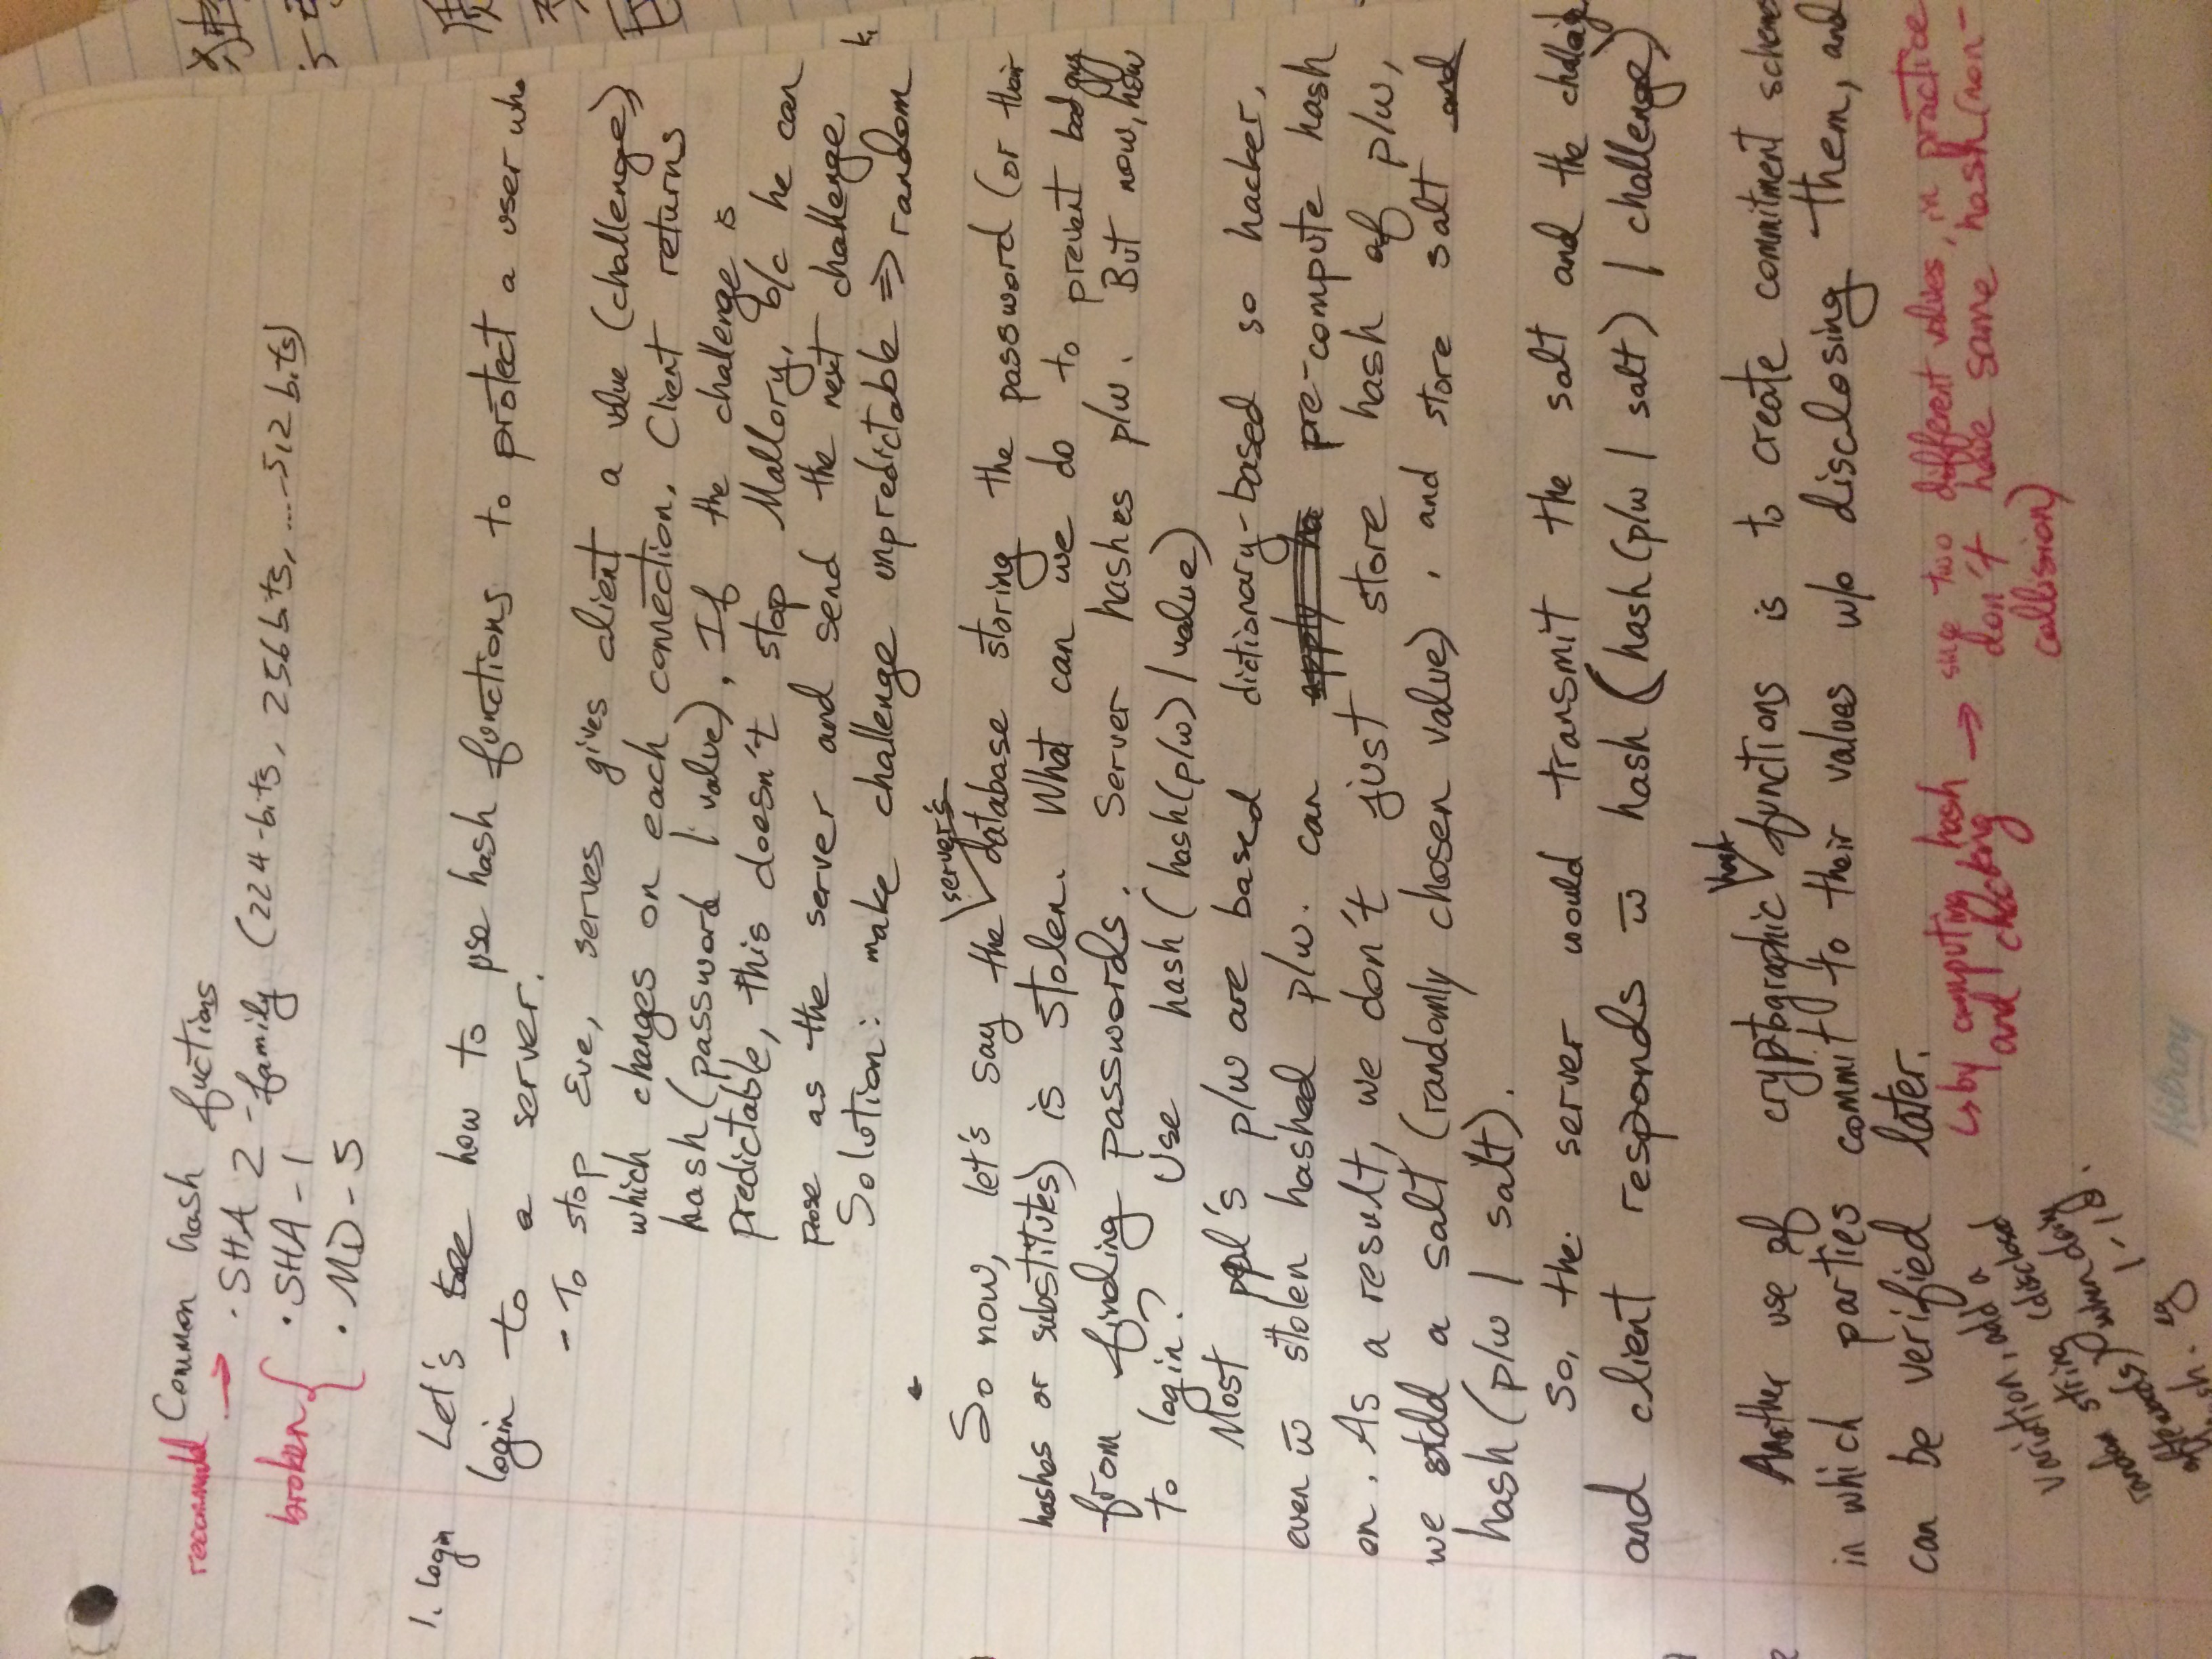 Common hash fuctions
recommend → · SHA 2 - family (224-bits, 256 bits, ... 512 bits)
broken { · SHA - 1
· MD - 5
1. login Let's see how to use hash functions to protect a user who
login to a server.
- To stop Eve, serves gives client a value (challenge),
which changes on each connection. Client returns
hash (password | value), If the challenge is
predictable, this doesn't stop Mallory, b/c he can
pose as the server and send the next challenge.
Solution: make challenge unpredictable ⇒ random
So now, let's say the server's database storing the password (or their
hashes or substitutes) is stolen. What can we do to prevent bad guy
from finding passwords. Server hashes p/w. But now, how
to login? Use hash (hash(p/w) | value)
Most ppl's p/w are based dictionary-based so hacker,
even w̄ stolen hashed p/w. can apply ha pre-compute hash
on. As a result, we don't just store hash of p/w,
we add a salt (randomly chosen value), and store salt and
hash (p/w | salt).
So, the server would transmit the salt and the challenge
and client responds w̄ hash (hash (p/w | salt) | challenge)
Another use of cryptographic hash functions is to create commitment scheme
in which parties commit to their values w/o disclosing them, and
can be verified later.
↳ by computing hash → since two different values, in practice
and checking don't have same hash (non-
collision)
variation, add a
random string (disclosed
afterwards) when doing
hash. eg 1-10.
Hilroy